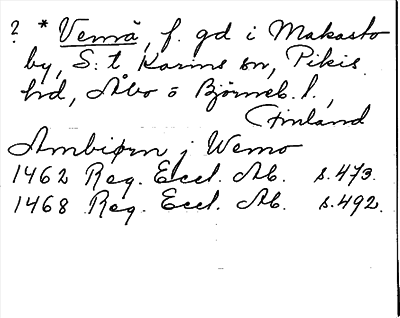 ? * Vemä, f. gd i Makasto
by, S:t Karins sn, Pikis
hd, Åbo o Björneb. l.,
Finland
Ambiørn j Wemo
1462 Reg. Eccl. Ab. s. 473.
1468 Reg. Eccl. Ab. s. 492.